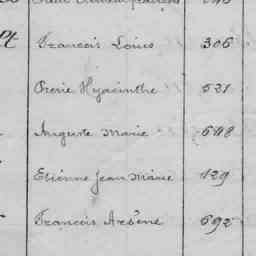 François Louis 306
Hyacinthe 521
Auguste Marie 648
Etienne Jean Marie 129
François Arsène 692